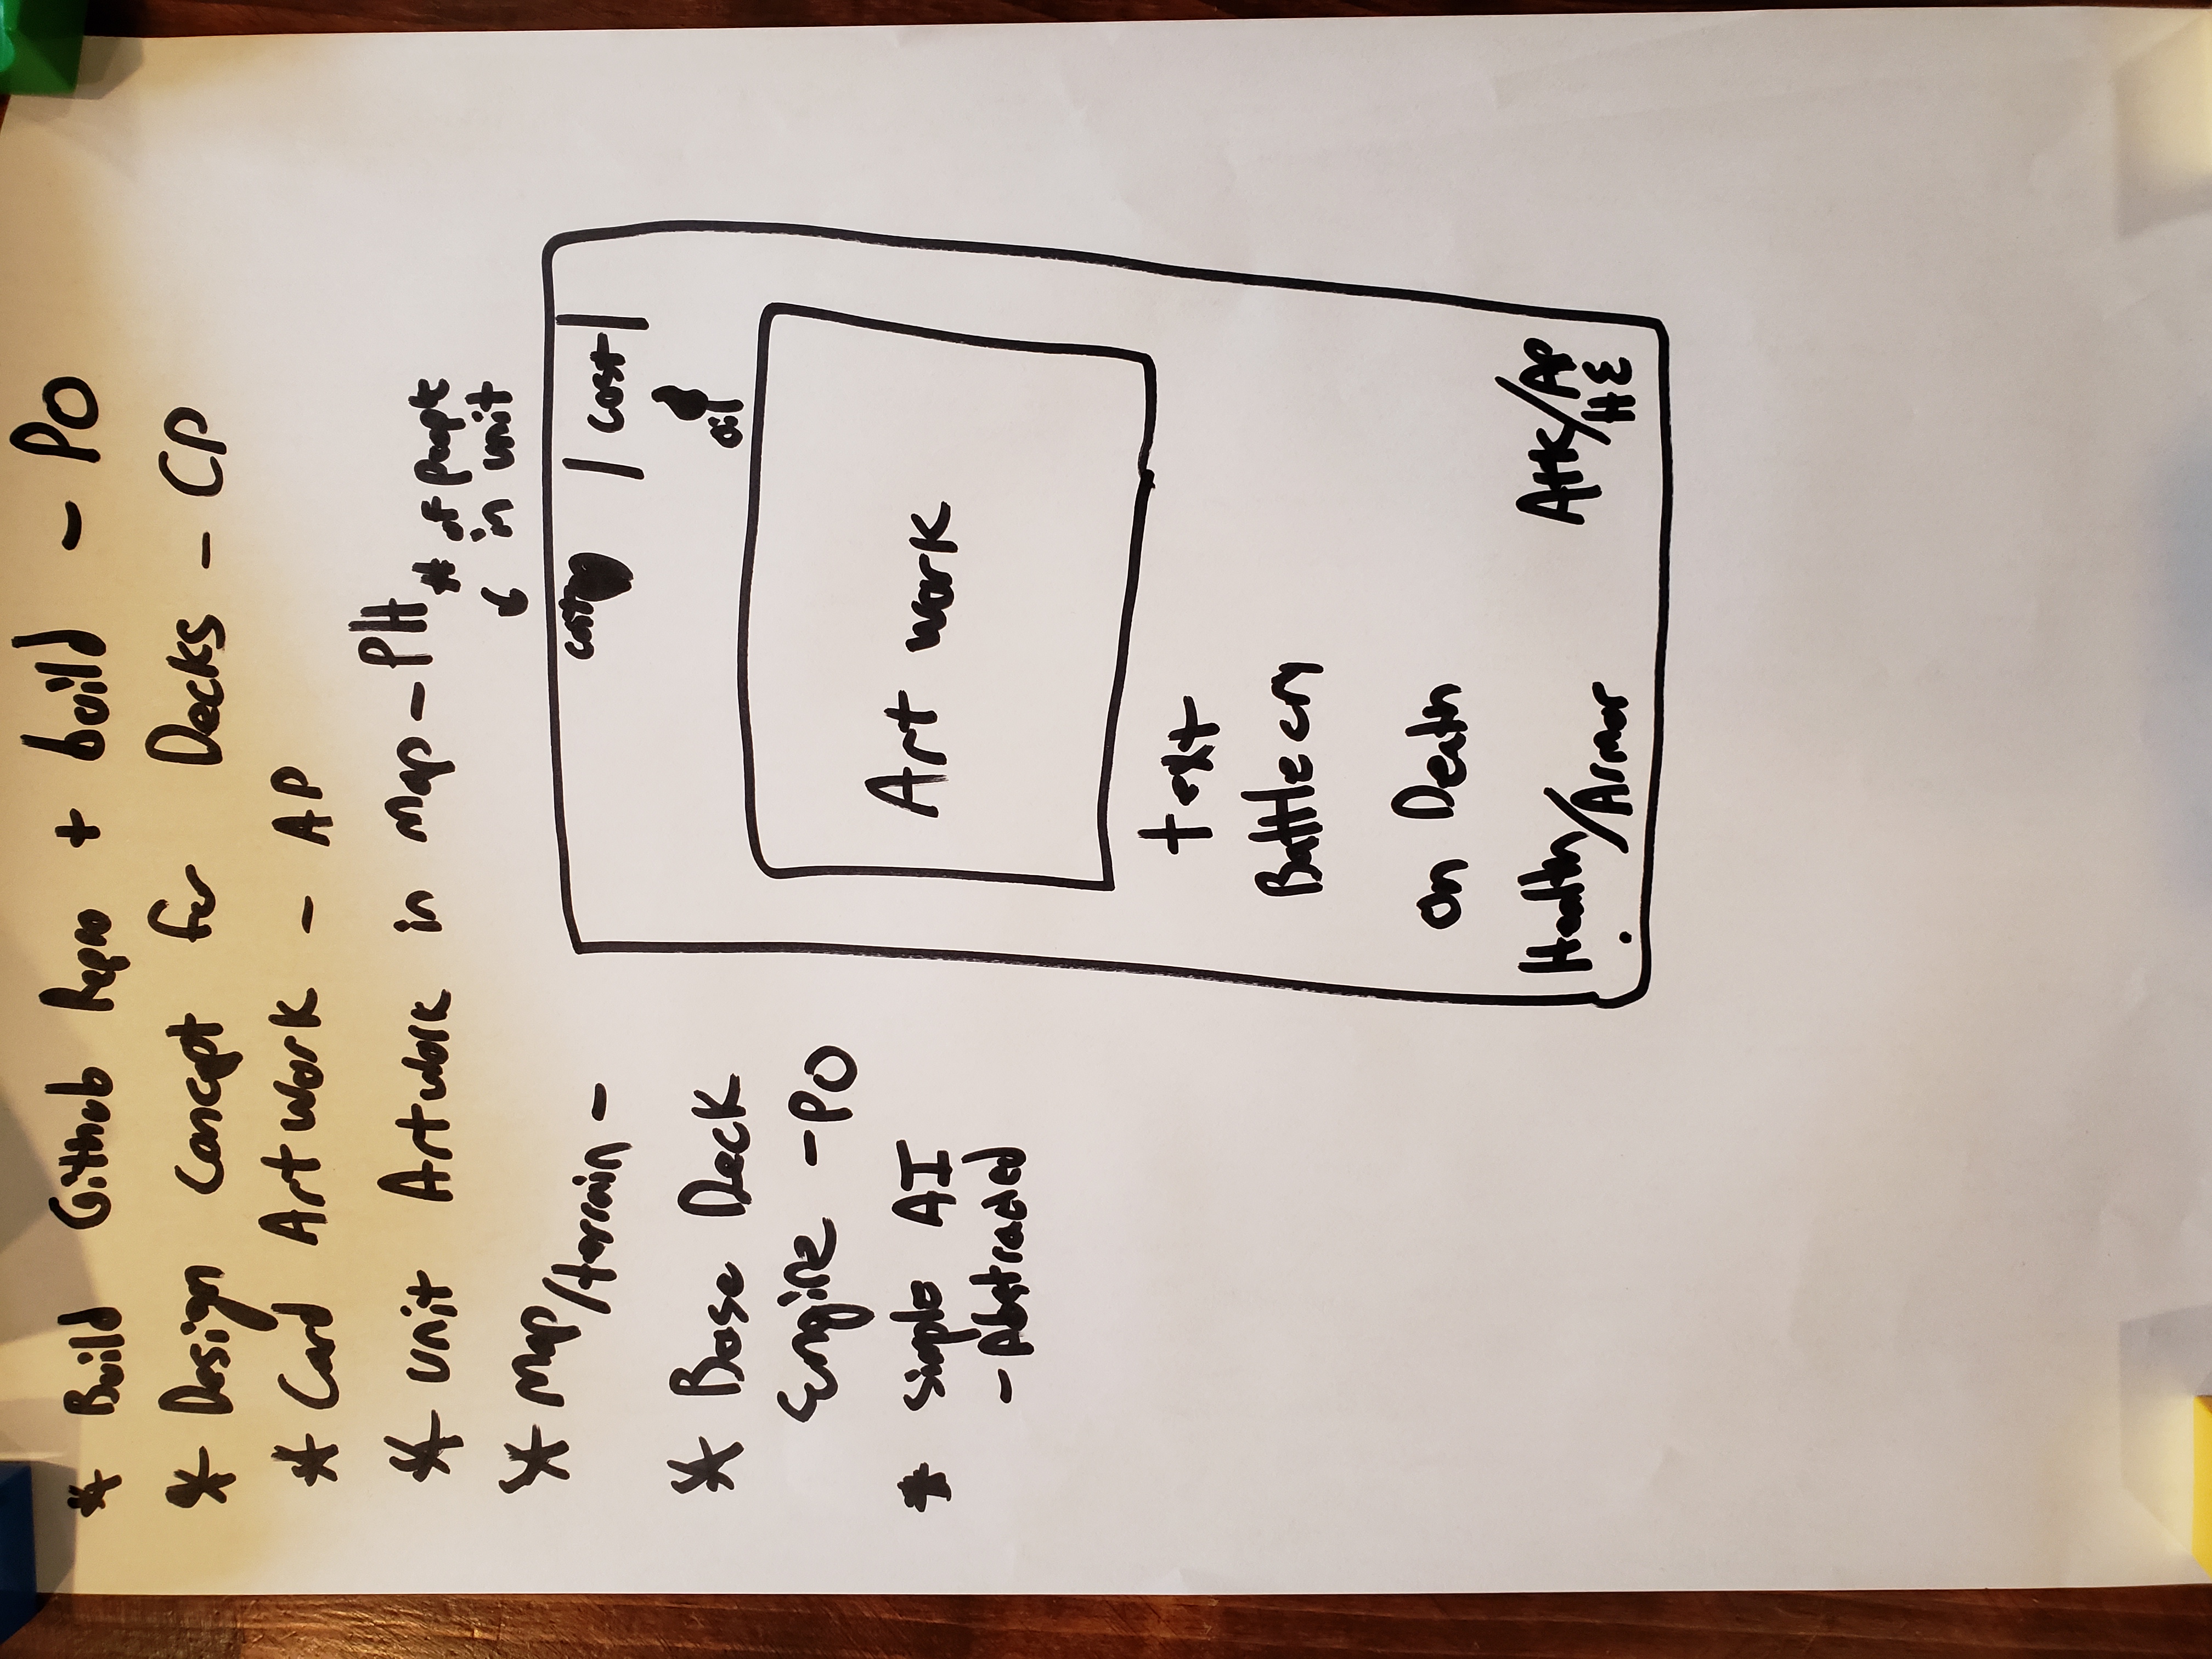 * Build Github Repro + build - PO
* Design Concept for Decks - CP
* Card Artwork - AP
* Unit Artwork in Map - PH
# of people
in unit
* Map/terrain -
* Base Deck
Engine - PO
* Simple AI
- Abstracted
cost
| cost |
oil
Art work
text
Battlecry
on Death
Health/Armor
Attk/AP
HE